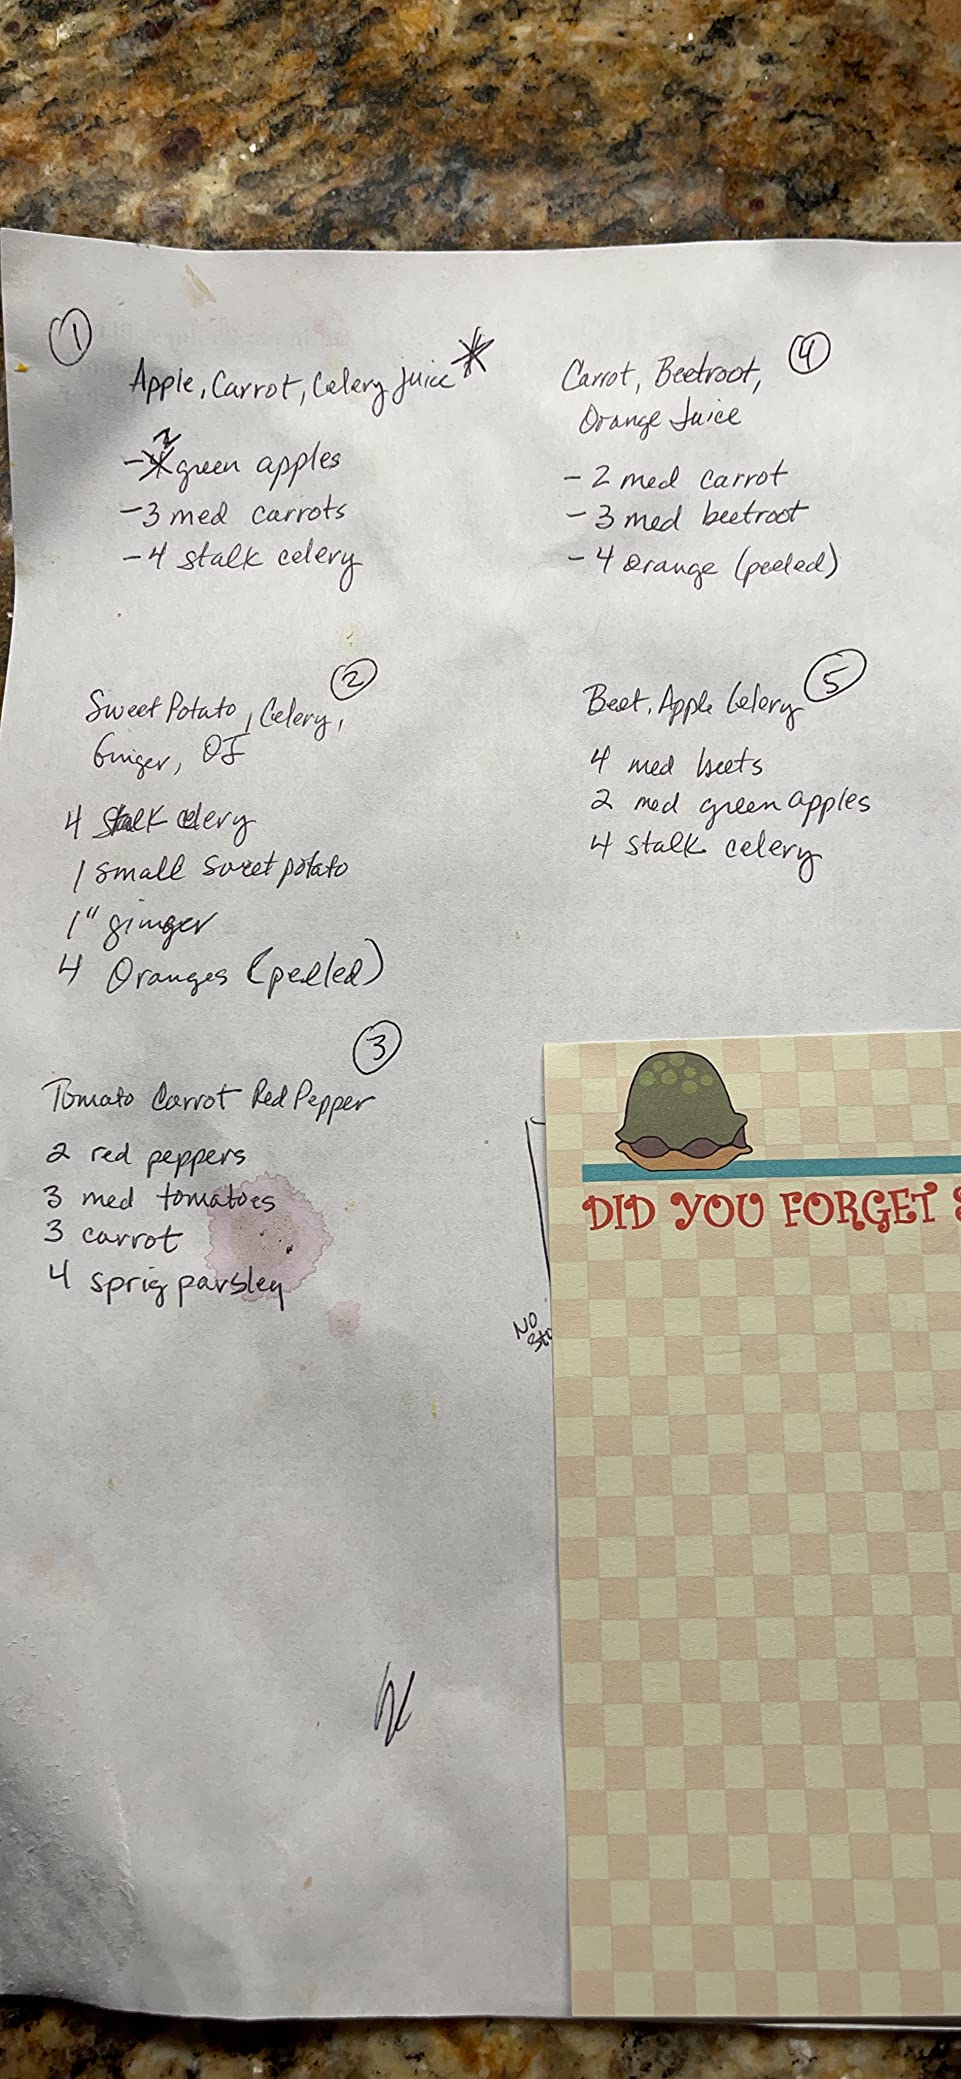 1
Apple, Carrot, Celery Juice *
- 2 green apples
- 3 med carrots
- 4 stalk celery
2
Sweet Potato, Celery,
Ginger, OJ
4 stalk celery
1 small sweet potato
1" ginger
4 Oranges (pelled)
3
Tomato Carrot Red Pepper
2 red peppers
3 med tomatoes
3 carrot
4 sprig parsley
4
Carrot, Beetroot,
Orange Juice
- 2 med carrot
- 3 med beetroot
- 4 orange (peeled)
5
Beet, Apple Celery
4 med beets
2 med green apples
4 stalk celery
NO
DID YOU FORGET